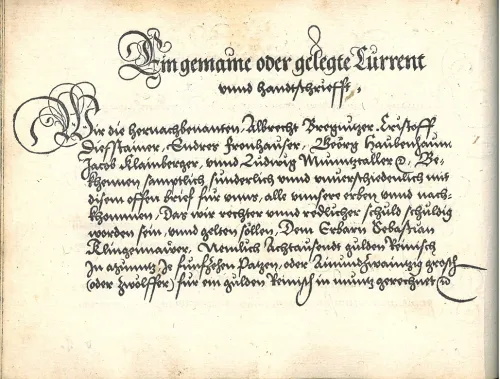 Ein gemaine oder gelegte Current
vnnd handtschriefft,
Wir die hernachbenanten, Albrecht Bregnitzer, Cristoff
Diefstainer, Endres Fronhauser, Geörg Haubenhaum,
Jacob Klainberger, vnnd Ludwig Munntzaller &, Be-
khennen samptlich sunderlich vnnd vnuerschiedenlich mit
disem offen brief für vnns, alle vnnsere erben vnnd nach-
khommen, Das wir rechter vnnd redlicher schuld schuldig
worden sein, vnnd gelten söllen, Dem Erbarn Sebastian
Klingennauer, Nemlich Achtausendt gulden Reinisch
Jn ye funfzehen Patzen, oder Ainundzwaintzig grosch
(oder zwölffer) für ein gulden Reinisch in muntz gerechnet